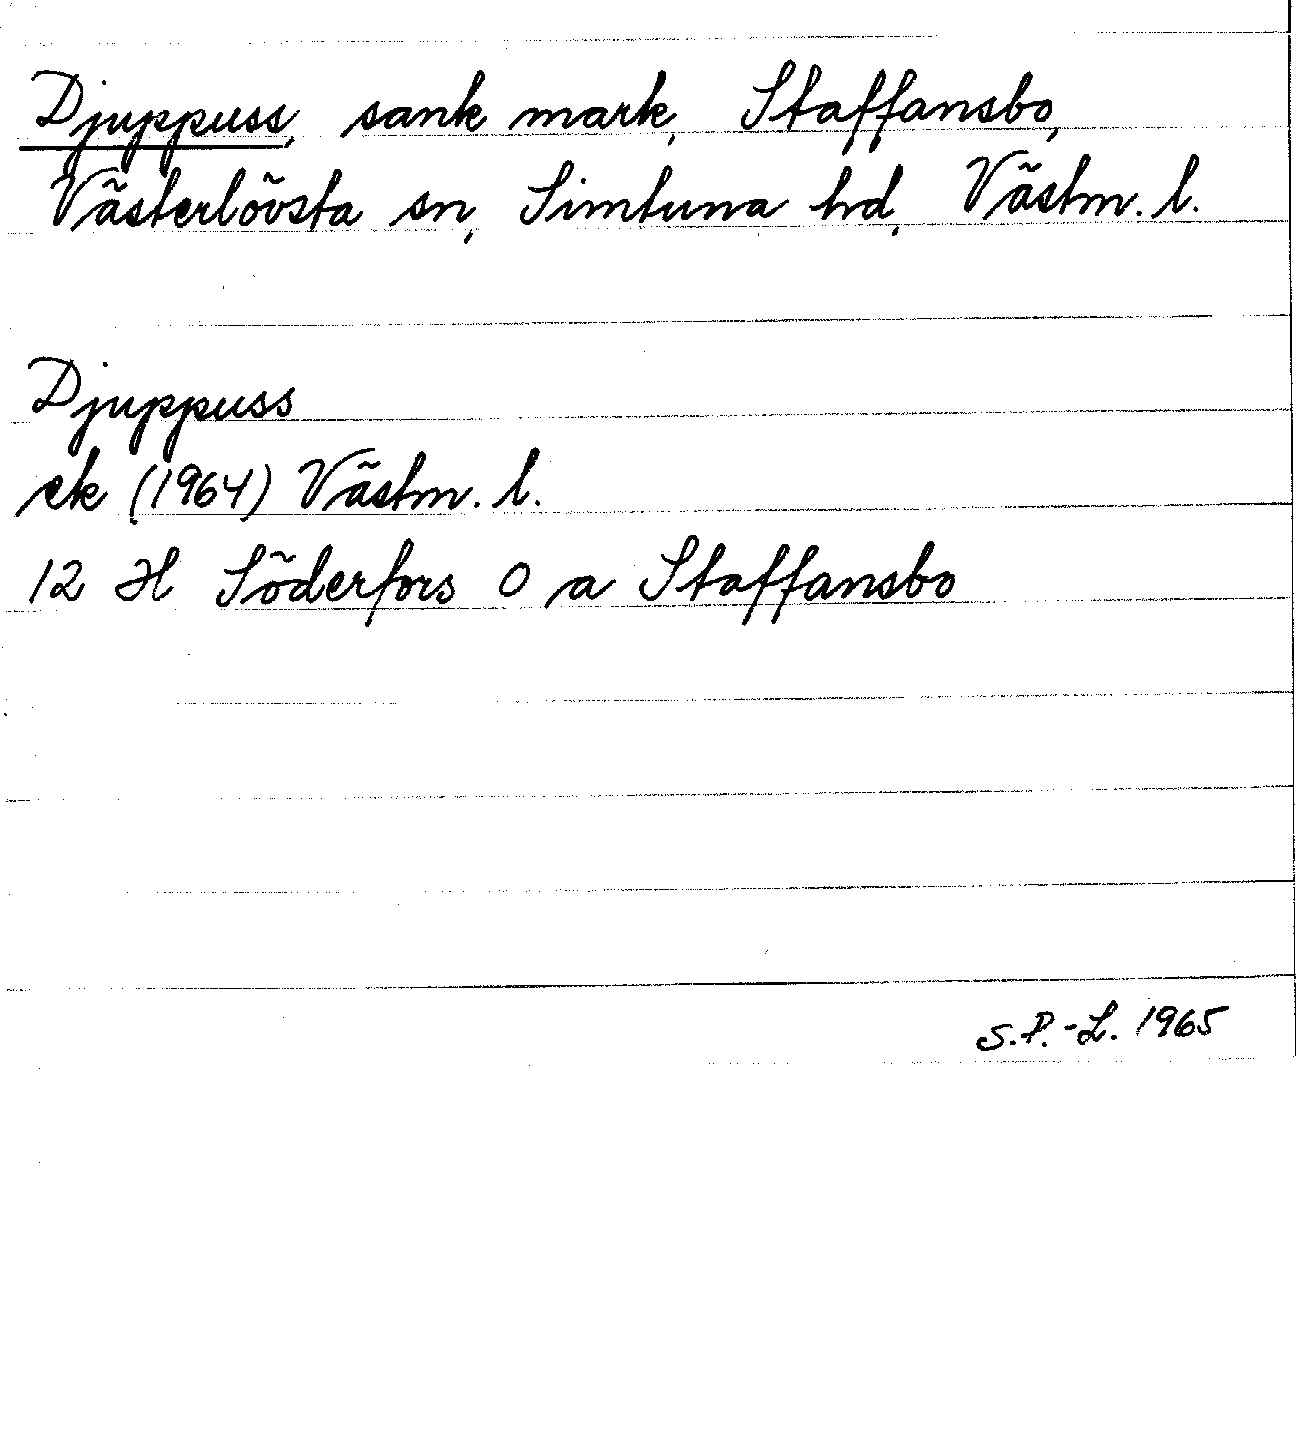 Djuppuss, sank mark, Staffansbo,
Västerlövsta sn, Simtuna hd, Västm. l.
Djuppuss
ek (1964) Västm. l.
12 H Söderfors 0 a Staffansbo
S.P.-L. 1965